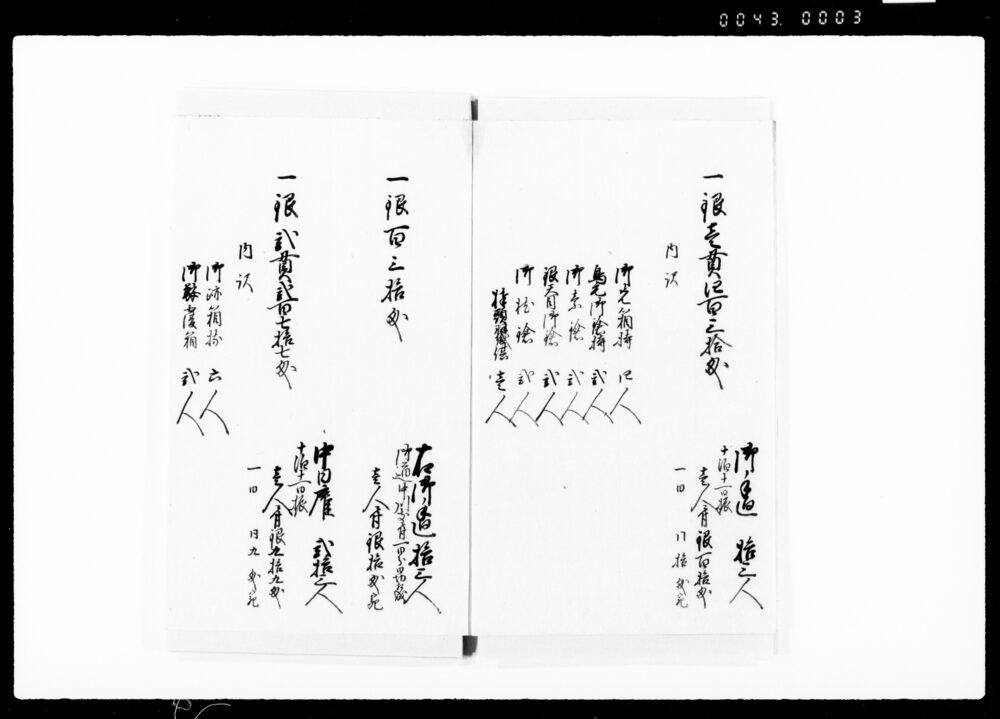 一銀壱貫四百三拾匁
御手廻 拾三人
十泊十一日振
壱人ニ付銀百拾匁
一日 拾匁宛
内訳
御先箱持 四人
鳥毛御鎗持 弐人
御素鎗 弐人
銀天目御鎗 弐人
御 鎗 弐人
供 壱人
一銀百三拾匁
右御手廻拾三人
御道中
壱人ニ付銀拾匁宛
一銀弐貫弐百七拾七匁
中日雇 弐拾三人
十泊十一日振
壱人ニ付銀九拾九匁
一日 九匁宛
内訳
御跡箱持 六人
御 箱 弐人
0043.0003